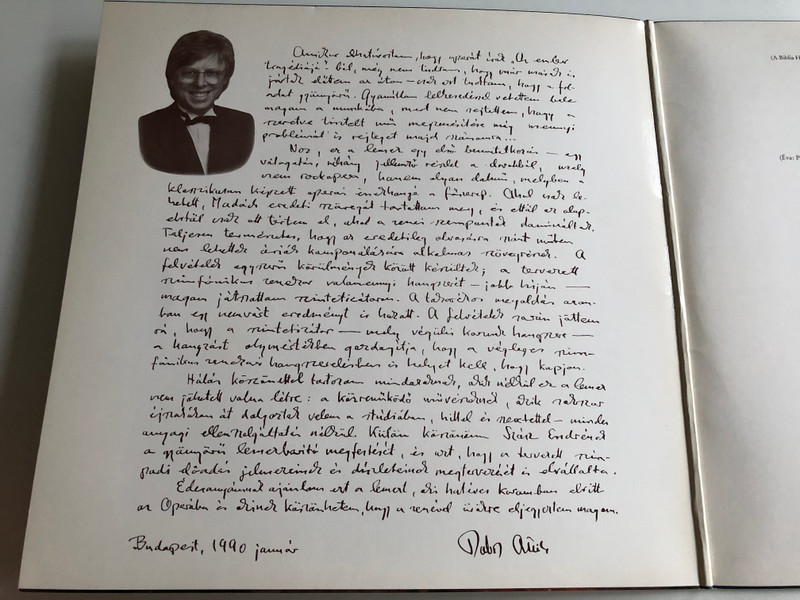 Amikor elhatároztam, hogy operát írok "Az ember
tragédiájá"-ból, még nem tudtam, hogy már mások is
jártak előttem az úton – csak azt tudtam, hogy a fel-
adat gyönyörű. Gyanútlan lelkesedéssel vetettem bele
magam a munkába, mert nem sejtettem, hogy a
szeretve tisztelt mű megzenésítése még mennyi
problémát is rejteget majd számomra...
Nos, ez a lemez egy első bemutatkozás – egy
válogatás, néhány jellemző részlet a darabból, mely
nem rockopera, hanem olyan dalmű, melyben a
klasszikusan képzett operai énekhangé a főszerep. Ahol csak le-
hetett, Madách eredeti szövegét tartottam meg, és ettől az alap-
elvtől csak ott tértem el, ahol a zenei szempontok domináltak.
Teljesen természetes, hogy az eredetileg olvasásra szánt műben
nem lehettek áriák komponálására alkalmas szövegrészek. A
felvételek egyszerű körülmények között készültek; a tervezett
szimfónikus zenekar valamennyi hangszerét – jobb híján –
magam játszottam szintetizátoron. A
megoldás azon-
ban egy nem várt eredményt is hozott. A felvételek során jöttem
rá, hogy a szintetizátor – mely végülis korunk hangszere –
a hangzást olymértékben gazdagítja, hogy a végleges szim-
fónikus zenekari hangszerelésben is helyet kell, hogy kapjon.
Hálás köszönettel tartozom mindazoknak, akik nélkül ez a lemez
nem jöhetett volna létre: a közreműködő művészeknek, akik sokszor
éjszakákon át dolgoztak velem a stúdióban, hittel és szeretettel – minden
anyagi ellenszolgáltatás nélkül. Külön köszönöm Szász Endrének
a gyönyörű lemezborító megfestését, és azt, hogy a tervezett szín-
padi előadás jelmezeinek és díszleteinek megtervezését is elvállalta.
Édesanyámnak ajánlom ezt a lemezt, aki hatéves koromban elvitt
az Operába és akinek köszönhetem, hogy a zenével örökre eljegyeztem magam.
Budapest, 1990 január
(A Biblia H
(Éva: P